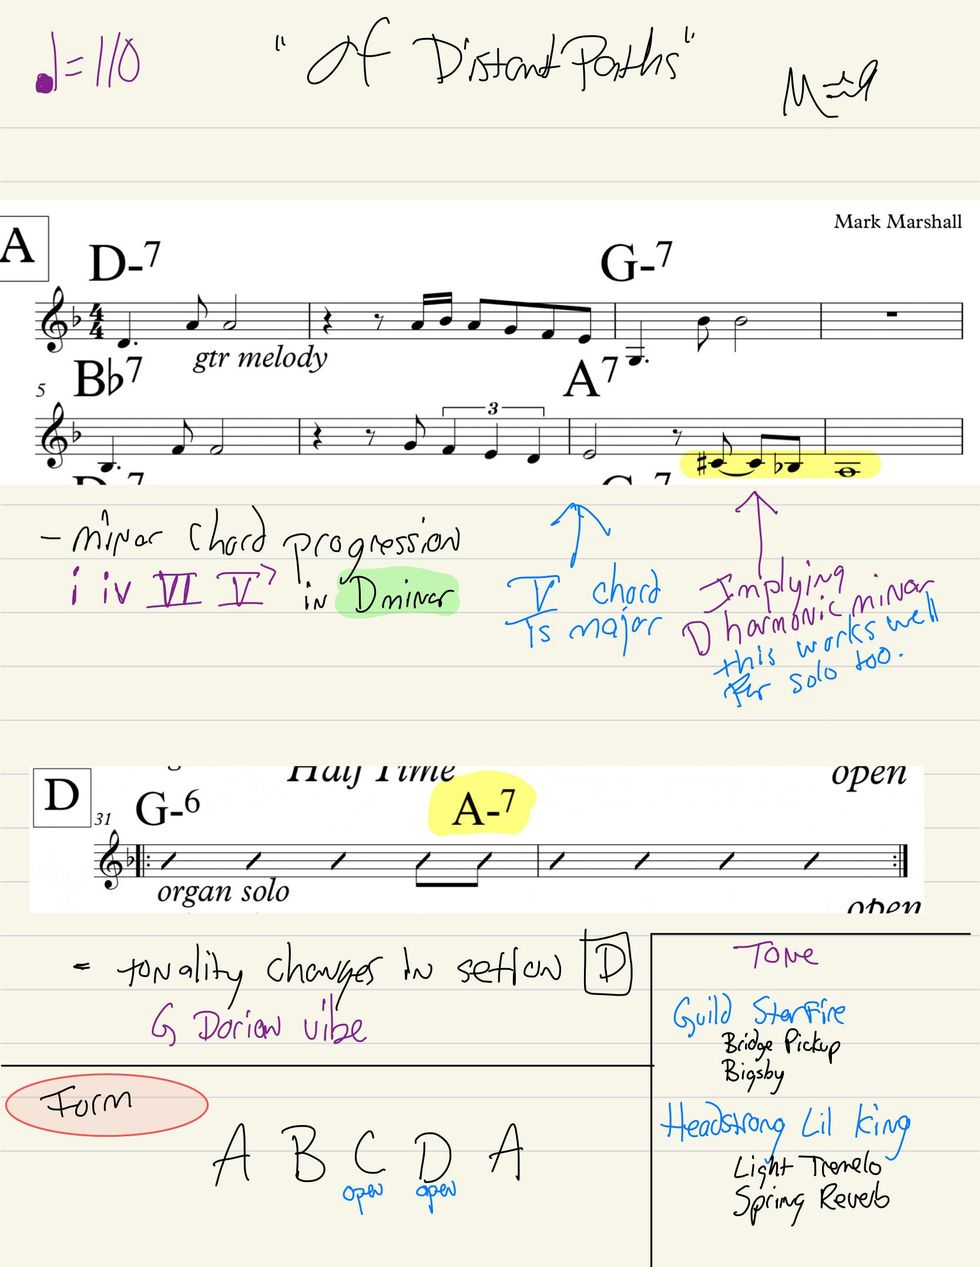 ♩=110 "Of Distant Paths"
Mark Marshall
A D-7 G-7
4/4
gtr melody
5 Bb7 A7
3
- minor chord progression
i iv VI V7 in D minor
V chord
Is major
Implying
D harmonic minor
this works well
for solo too.
Half Time open
D 31 G-6 A-7
organ solo
open
- tonality changes in section D
G Dorian vibe
Tone
Guild Starfire
Bridge Pickup
Bigsby
Headstrong Lil King
Light Tremelo
Spring Reverb
Form
A B C D A
open open